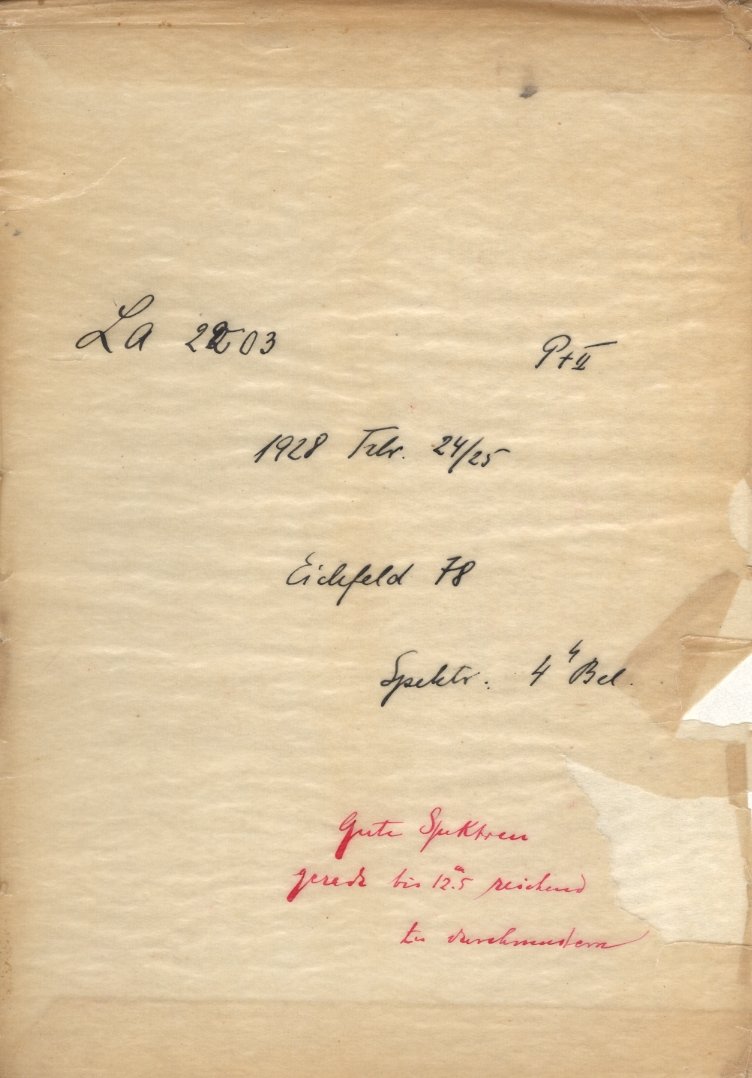 La 2203 Pt II
1928 Febr. 24/25
Eichfeld 78
Spektr. 4ʰ Bel.
Gute Spektren
gerade bis 12ᵐ.5 reichend
durchmustern